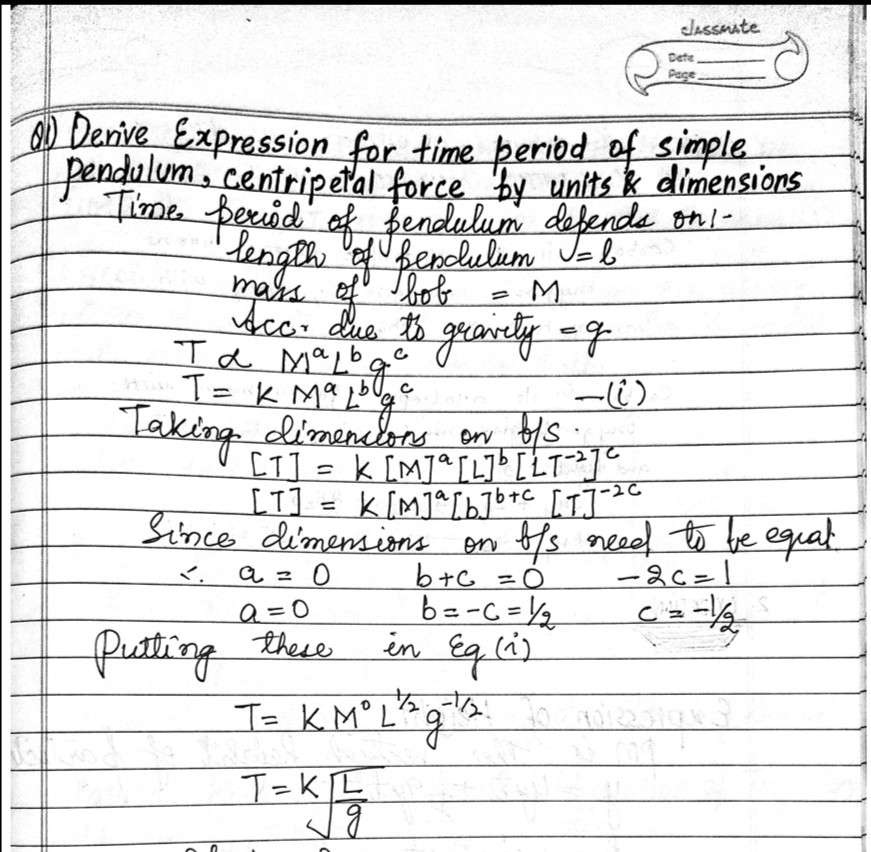 classmate
Date
Page
Q1) Derive Expression for time period of simple
pendulum, centripetal force by units & dimensions
Time period of pendulum depends on:-
length of pendulum = l
mass of bob = M
Acc. due to gravity = g
T α Mᵃ Lᵇ gᶜ
T = K Mᵃ Lᵇ gᶜ —(i)
Taking dimensions on b/s.
[T] = K [M]ᵃ [L]ᵇ [LT⁻²]ᶜ
[T] = K [M]ᵃ [b]ᵇ⁺ᶜ [T]⁻²ᶜ
Since dimensions on b/s need to be equal
∴ a = 0 b+c = 0 -2c = 1
a = 0 b = -c = 1/2 c = -1/2
Putting these in Eq (i)
T = K M⁰ L^1/2 g^-1/2
T = K √(L/g)